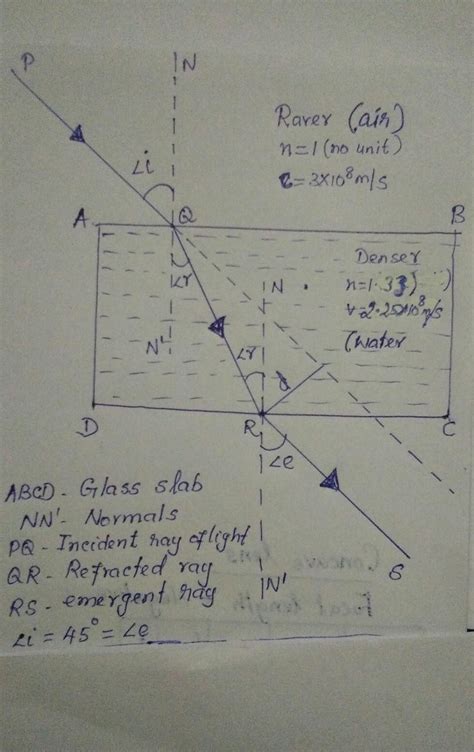 P
N
Raver (air)
n=1 (no unit)
c=3×10⁸m/s
∠i
A
Q
B
∠r
Denser
N
n=1.33)
v=2.25×10⁸m/s
N'
(water
∠r
d
D
R
C
∠e
ABCD - Glass slab
NN' - Normals
PQ - Incident ray of light
QR - Refracted ray
RS - emergent ray
∠i = 45° = ∠e
N'
S
Concave lens
Focal length